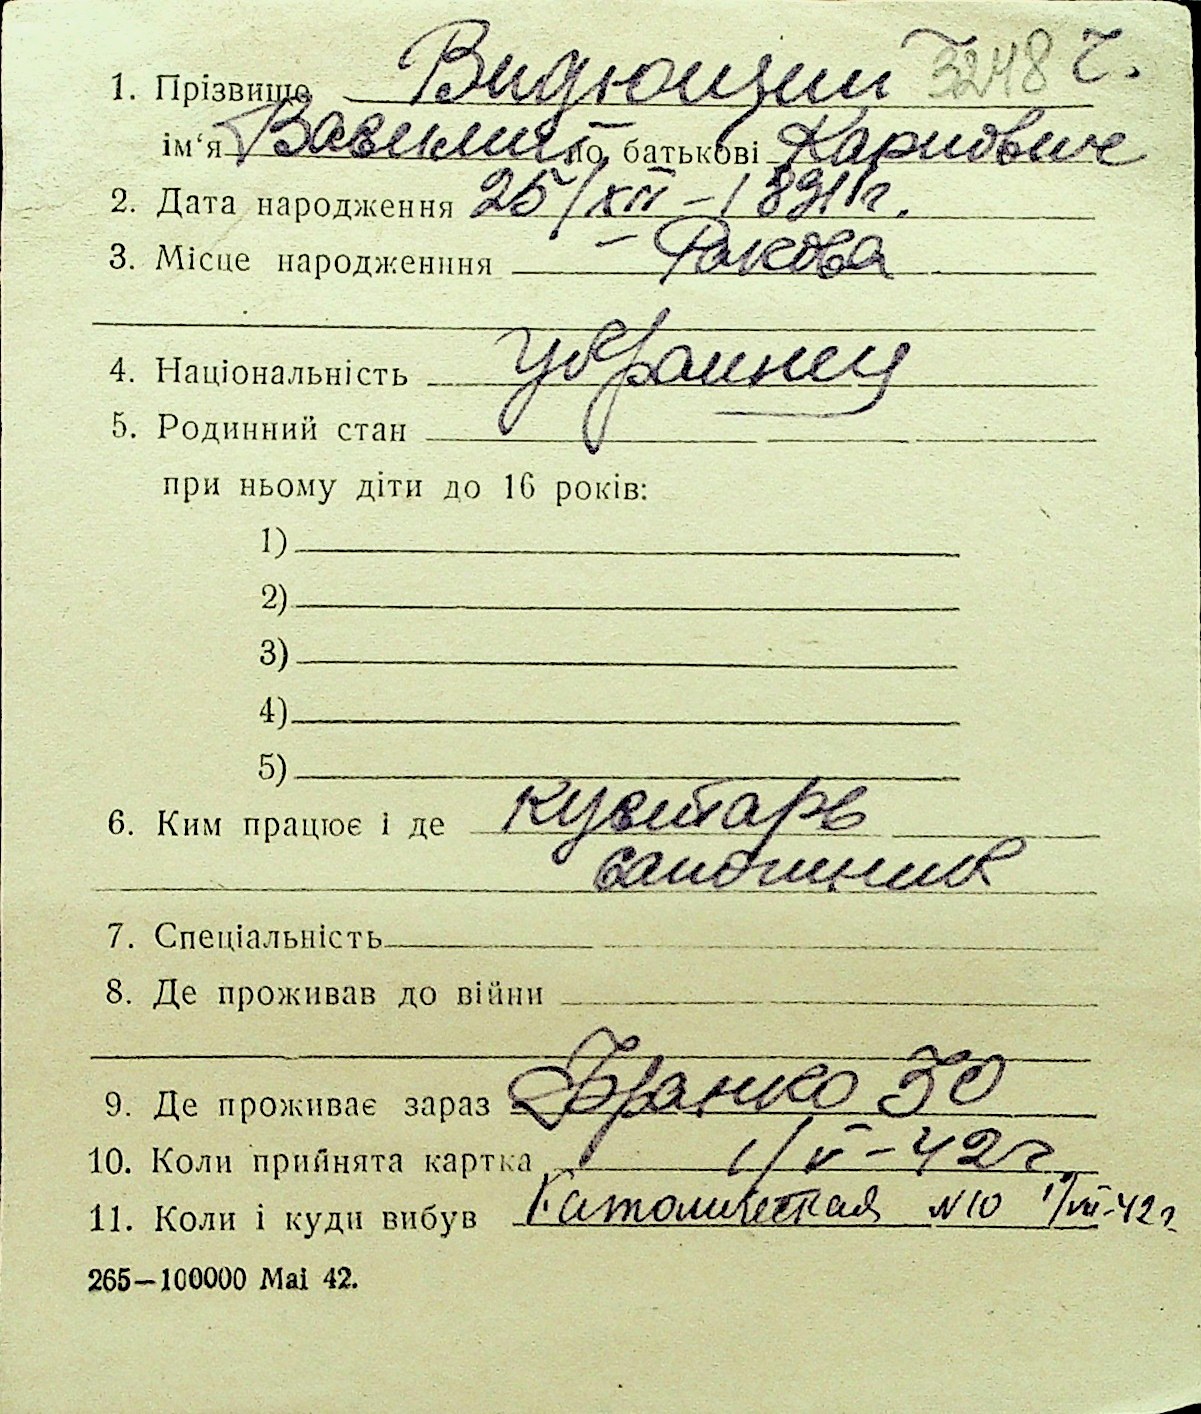 1. Прізвище Видющий 3248 г.
ім‘я Василий по батькові Карпович
2. Дата народження 25/XII – 1891 г.
3. Місце народженння – Ракова
4. Національність украинец
5. Родинний стан
при ньому діти до 16 років:
1)
2)
3)
4)
5)
6. Ким працює і де кустарь
сапожник
7. Спеціальність
8. Де проживав до війни
9. Де проживає зараз Франко 30
10. Коли прийнята картка 1/V – 42 г
11. Коли і куди вибув Католическая N10 1/VII-42 г
265—100000 Mai 42.